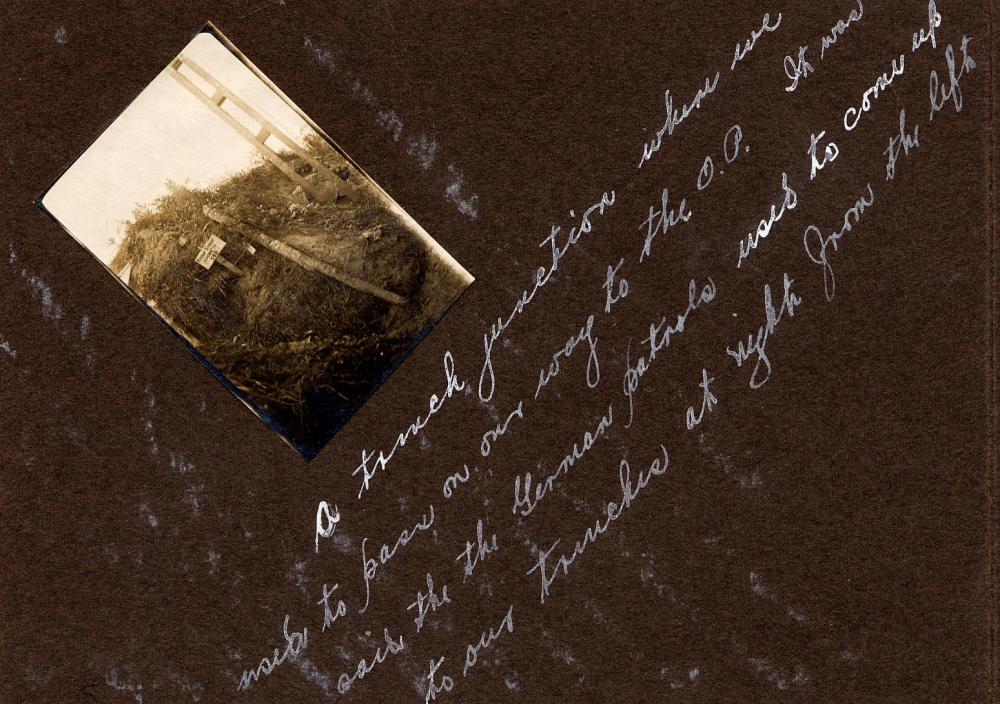 A trench junction where we
used to pass on our way to the O.P. It was
said the the German patrols used to come up
to our trenches at night from the left